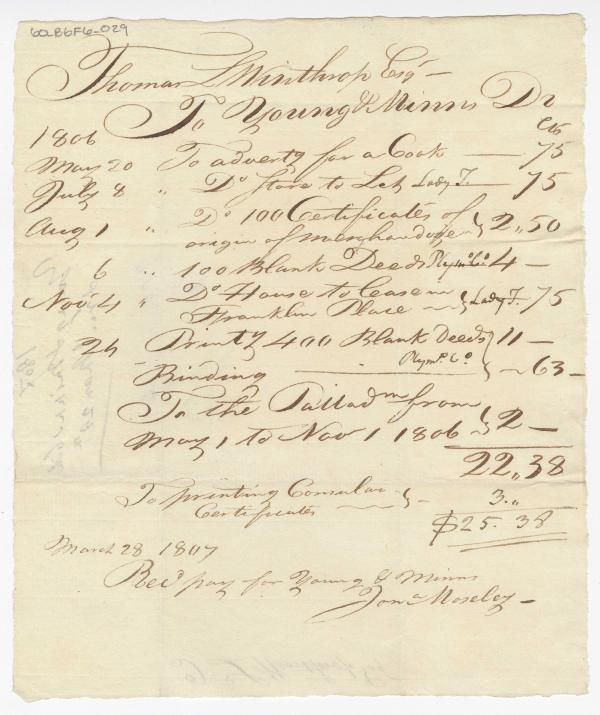 60.B6F6-029
Thomas L Winthrop Esqr
To Young & Minns Dr
1806 cts
May 20 To advertg for a Cook — 75
July 8 " Do Store to Let Lady T. — 75
Aug 1 " Do 100 Certificates of
origin of merchandize } 2,,50
6 " 100 Blank Deeds Plymo Co 4 —
Nov 4 " Do House to lease in
Franklin Place — } Lady T. 75
24 Printg 400 Blank Deeds 11 —
Plymo Co
Binding — } — 63 —
To the Palladm from
May 1 to Nov 1 1806 } 2 —
22,,38
To printing Consular
Certificates — } — 3.,,
$25.38
March 28 1807
Recd pay for Young & Minns
Jona Moseley —